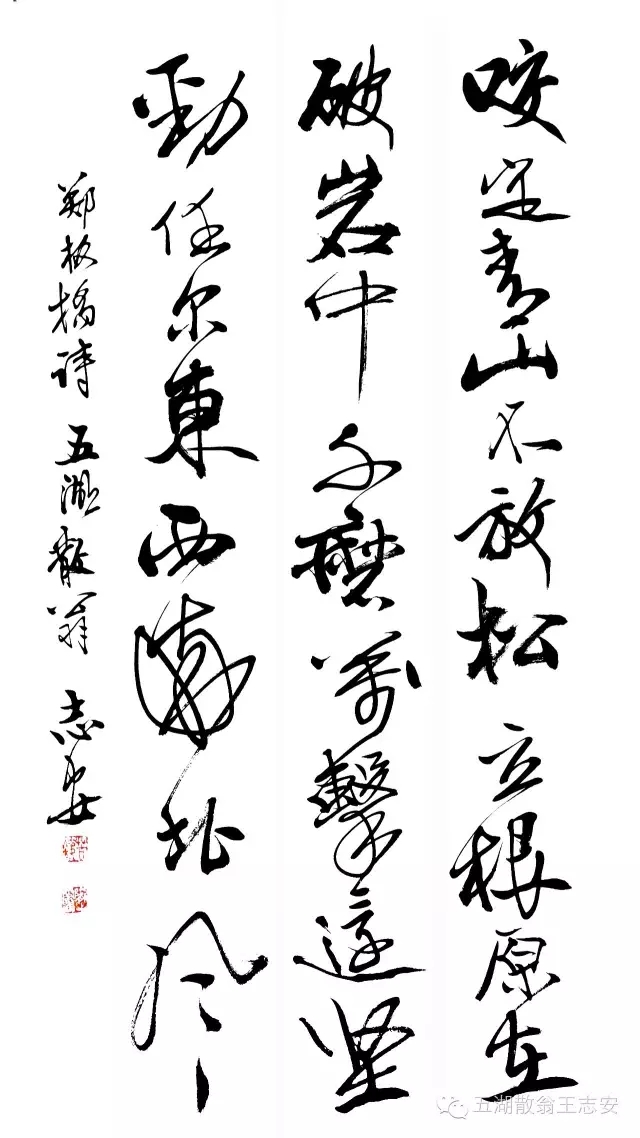 咬定青山不放松立根原在
破岩中千磨萬擊還坚
勁任尔東西南北风
郑板橋诗 五湖散翁 志安
五湖散翁王志安